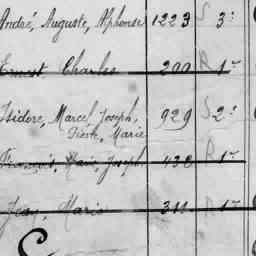 André, Auguste, Alphonse 1223 S 3e
Ernest Charles 200 R 1er
Isidore, Marcel, Joseph, 929 S 2e
Désiré, Marie
François, Marie, Joseph 430 R 1er
Jean, Marie 311 R 1er